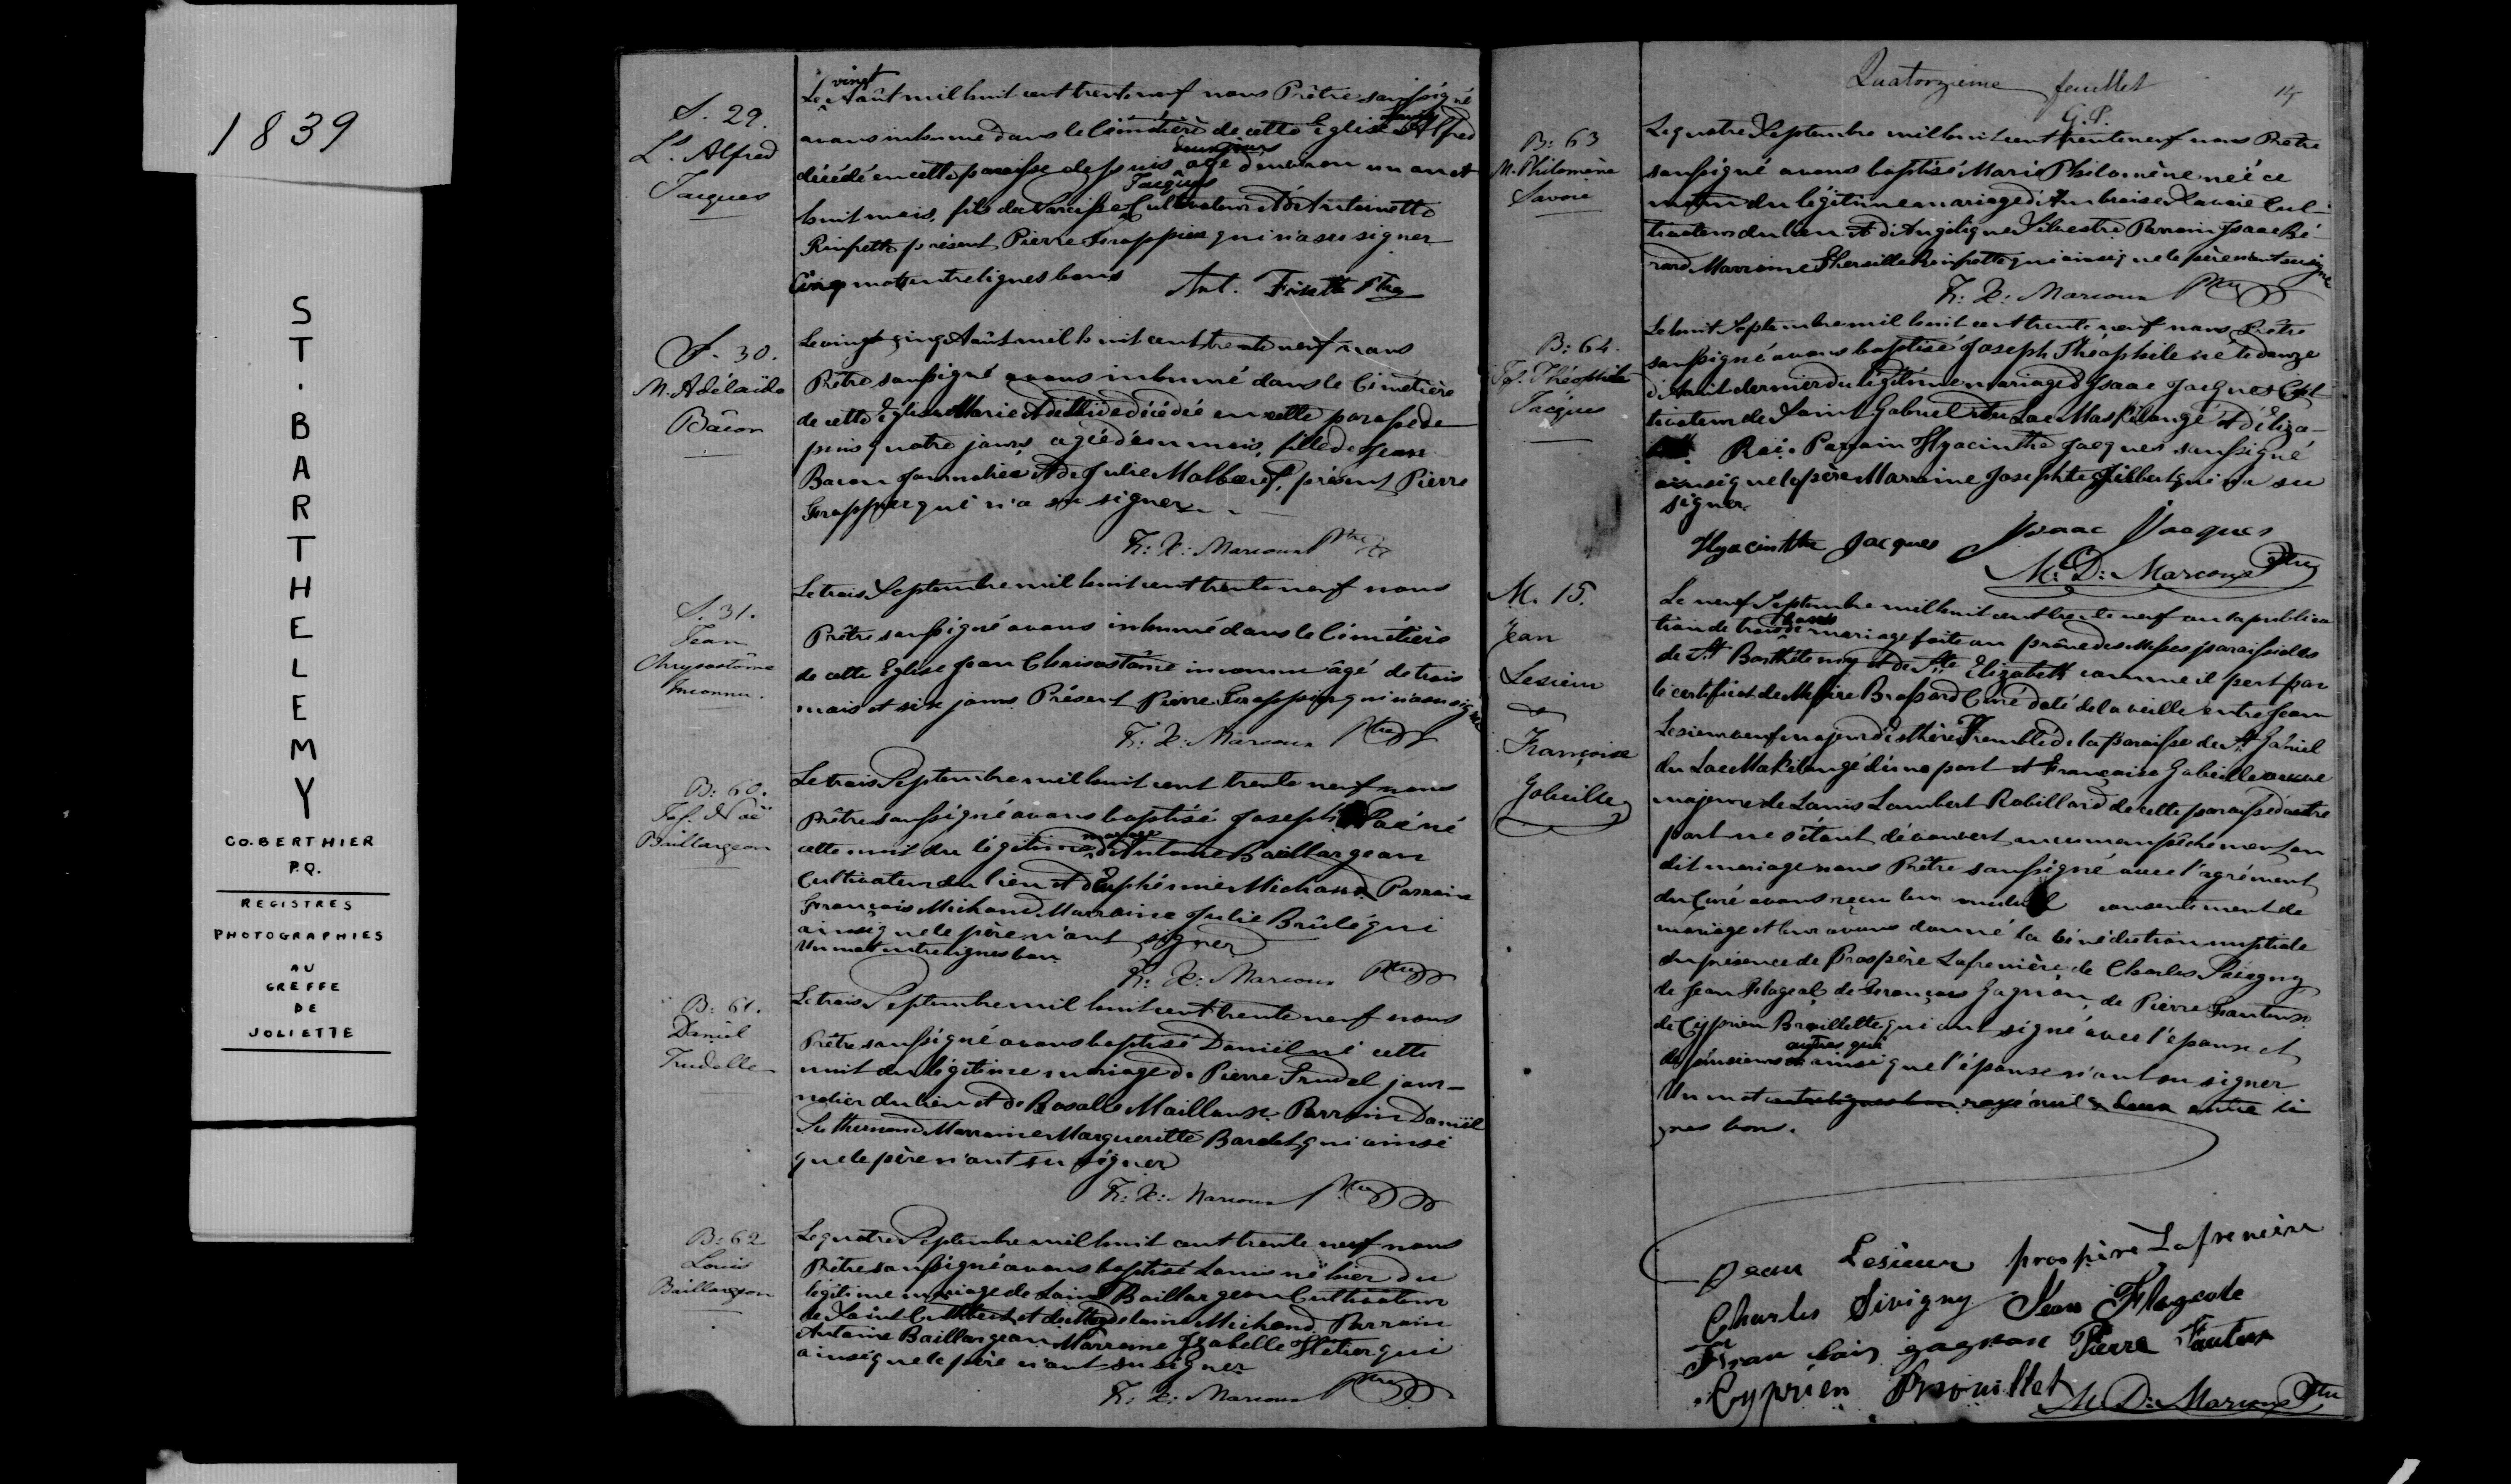 1839
ST. BARTHELEMY
CO. BERTHIER
P.Q.
REGISTRES
PHOTOGRAPHIES
AU
GREFFE
DE
JOLIETTE
S. 29.
Ls. Alfred
Jacques
vingt
Le Août mil huit cent trente neuf nous Prêtre soussigné
avons inhumé dans le Cimétière de cette Eglise Alfred
deux jours
décédé en cette paroisse depuis agé d'environ un an et
Jacques
huit mois, fils de Narcisse Cultivateur & d'Antoinette
Rinfrette présent Pierre Frappier qui n'a su signer
Cinq mots entrelignes bons Ant. Fisette Ptre
S. 30.
M. Adélaïde
Bacon
Le vingt cinq Août mil huit cent trente neuf nous
Prêtre soussigné avons inhumé dans le Cimétière
de cette Eglise Marie Adellide décédée en cette paroisse de
puis quatre jours, agée d'un mois, fille de Jean
Bacon Journalier & de Julie Malbœuf, présent Pierre
Frappier qui n'a su signer
F: X: Marcoux Ptre
S. 31.
Jean
Chrysostôme
Inconnu.
Le trois Septembre mil huit cent trente neuf nous
Prêtre soussigné avons inhumé dans le Cimétière
de cette Eglise Jean Chrisostôme inconnu âgé de trois
mois et six jours Présent Pierre Frappier qui n'a su signer
F: X: Marcoux Ptre
B: 60.
Jos. Noë
Baillargeon
Le trois Septembre mil huit cent trente neuf nous
Prêtre soussigné avons baptisé Joseph Noé né
mariage
cette nuit du légitime d'Antoine Baillargeon
Cultivateur du lieu et d'Euphémie Michaud. Parrain
François Michaud Marraine Julie Brûlé qui
ainsi que le père n'ont signer
Un mot entrelignes bon
F: X: Marcoux Ptre
B: 61.
Daniel
Trudelle
Le trois Septembre mil huit cent trente neuf nous
Prêtre soussigné avons baptisé Daniel né cette
nuit du légitime mariage de Pierre Trudel jour-
nalier du lieu et de Rosalie Mailloux. Parrain Daniel
Marraine Marguerite qui ainsi
que le père n'ont su signer
F: X: Marcoux Ptre
B: 62
Louis
Baillargeon
Le quatre Septembre mil huit cent trente neuf nous
Prêtre soussigné avons baptisé Louis né hier du
légitime mariage de Louis Baillargeon Cultivateur
de Saint Cuthbert et de Magdelaine Michaud Parrain
Antoine Baillargeon Marraine Isabelle Hetier qui
ainsi que le père n'ont su signer
F: X: Marcoux Ptre
Quatorzième feuillet 14
G.P.
B: 63
M. Philomène
Savoie
Le quatre Septembre mil huit cent trente neuf nous Prêtre
soussigné avons baptisé Marie Philomène née ce
matin du légitime mariage d'Ambroise Savoie Cul-
tivateur du lieu & d'Angélique Silvestre Parrain Isaac Bé-
rard Marraine Thersille Rinfrette qui ainsi que le père n'ont su signer
F: X: Marcoux Ptre
B: 64.
Jos. Théophile
Jacques
Le huit Septembre mil huit cent trente neuf nous Prêtre
soussigné avons baptisé Joseph Théophile né le douze
d'Août dernier du légitime mariage d'Isaac Jacques Cul-
tivateur de Saint Gabriel du Lac Maskilongé & d'Eliza-
Roi. Parrain Hyacinthe Jacques soussigné
ainsi que le père Marraine Josephte Gilbert qui n'a su
signer.
Hyacinthe Jacques Isaac Jacques
M: D: Marcoux Ptre
M. 15.
Jean
Lesieur
&
Françoise
Gobeille
Le neuf Septembre mil huit cent trente neuf vu la publica
bans
tion de trois de mariage faite au prône des Messes paroissiales
de St Barthélemy et de Ste Elizabeth comme il pert par
le certificat de Messire Brassard Curé daté de la veille entre Jean
Lesieur veuf majeur d'Esthère Tremblé de la paroisse de St Gabriel
du Lac Maskilongé d'une part et Françoise Gobeille veuve
majeure de Louis Lambert Robillard de cette paroisse d'autre
part ne s'étant découvert aucun empêchement au
dit mariage nous Prêtre soussigné avec l'agrément
du Curé avons reçu leur mutuel consentement de
mariage et leur avons donné la bénédiction nuptiale
en présence de Prospère Lafrenière, de Charles Sivigny,
de Jean Flageole, de François Gagnon, de Pierre Fauteux
de Cyprien Brouillette qui ont signé avec l'époux et
autres qui
de plusieurs ainsi que l'épouse n'ont su signer
Un mot entrelignes bon rayé nul & deux entre li
gnes bons.
Jean Lesieur prospère Lafrenière
Charles Sivigny Jean Flageole
Fran cois gagnon Pierre Fauteux
Cyprien Brouillet M. D: Marcoux Ptre